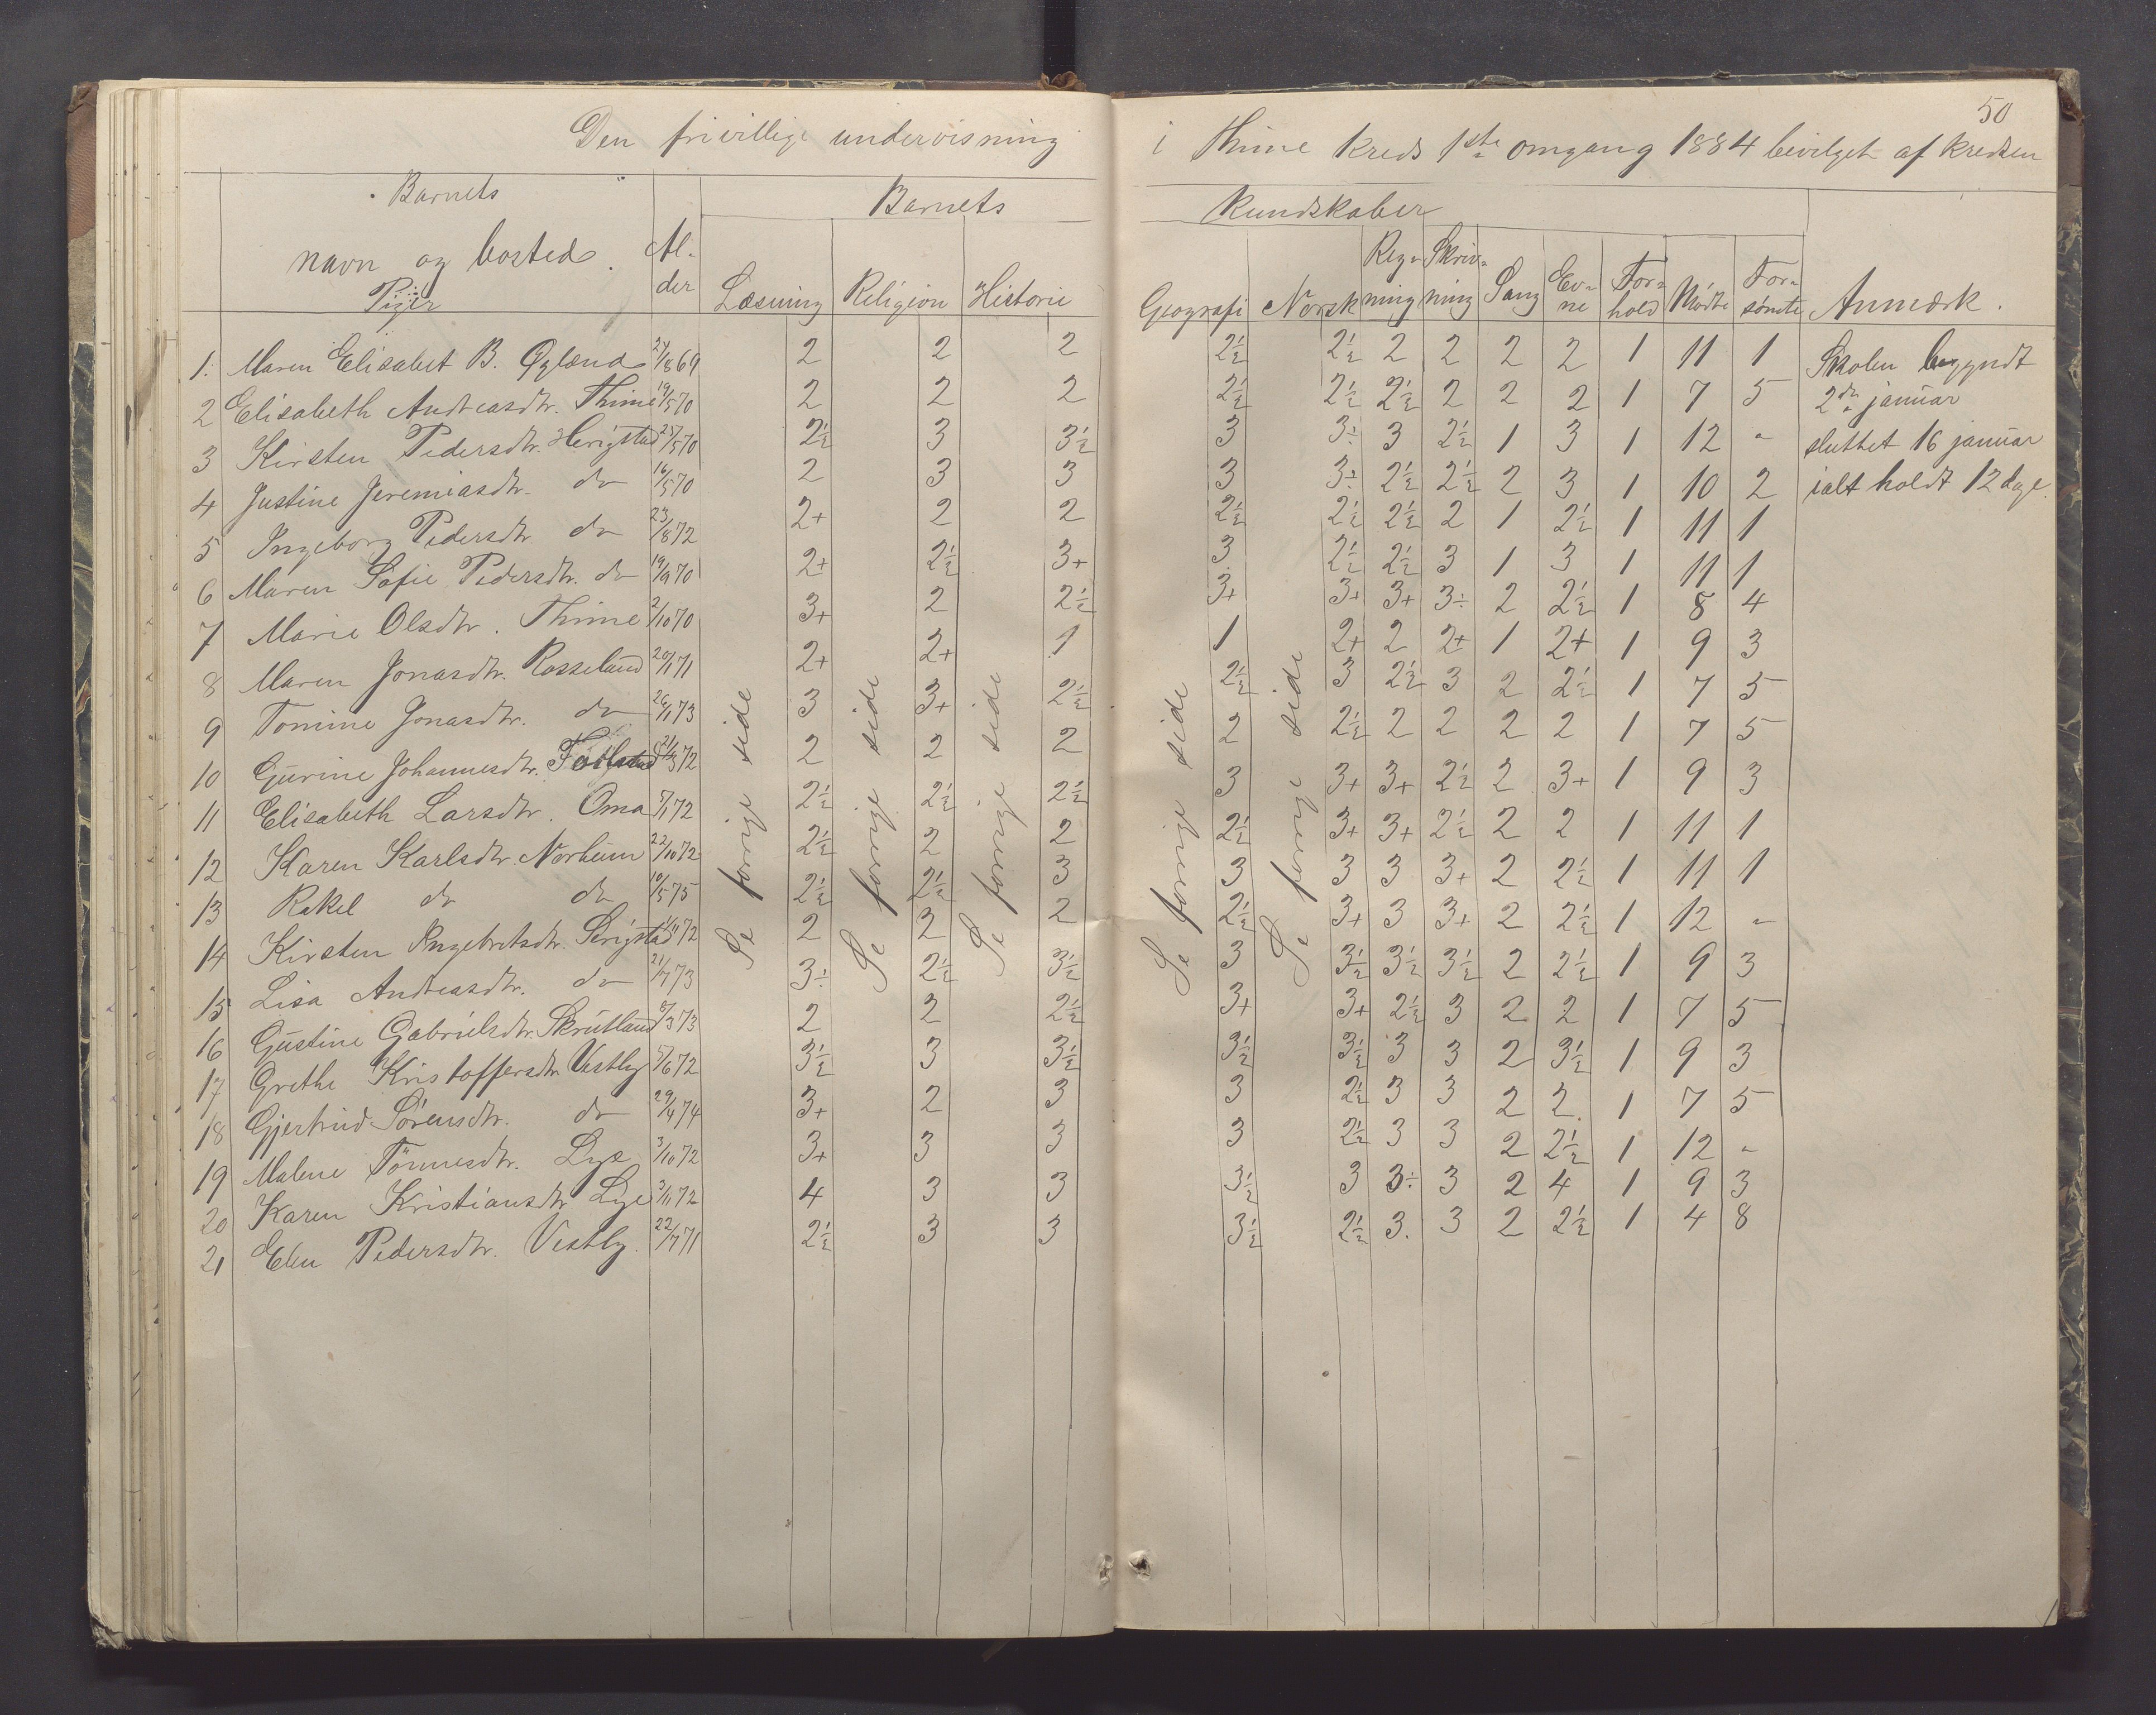 50
Den frivillige undervisning i Thime kreds 1ste omgang 1884 bevilget af kredsen
Barnets Barnets Kundskaber
navn og bosted. Al-der Læsning Religion Historie Geografi Norsk Reg-ning Skriv-ning Sang Ev-ne For-hold Mødte For-sømte Anmærk.
Piger
1. Maren Elisabet B. Øglænd 24/8 69 2 2 2 2½ 2½ 2 2 2 2 1 11 1 Skolen begyndt
2 Elisabeth Andreasdtr. Thime 19/5 70 2 2 2 2½ 2½ 2½ 2 2 2 1 7 5 2den januar
3 Kirsten Pedersdtr. Herigstad 25/5 70 2½ 3 3½ 3 3÷ 3 2½ 1 3 1 12 - sluttet 16 januar
4 Justine Jeremiasdtr. do 16/5 70 2 3 3 3 3÷ 2½ 2½ 2 3 1 10 2 ialt holdt 12 dage.
5 Ingeborg Pedersdtr do 23/8 72 2+ 2 2 2½ 2½ 2½ 2 1 2½ 1 11 1
6 Maren Sofie Pedersdtr. do 19/9 70 2+ 2½ 3+ 3 2½ 2½ 3 1 3 1 11 1
7 Marie Olsdtr. Thime 2/10 70 3+ 2 2½ 3+ 3+ 3+ 3÷ 2 2½ 1 8 4
8 Maren Jonasdtr. Rosseland 20/1 71 2+ 2+ 1 1 2+ 2 2+ 1 2+ 1 9 3
9 Tomine Jonasdtr. do 26/1 73 3 3+ 2½ 2½ 3 2½ 3 2 2½ 1 7 5
10 Gurine Johannesdtr. 21/3 72 2 2 2 2 2½ 2 2 2 2 1 7 5
11 Elisabeth Larsdtr. Oma 5/1 72 2½ 2½ 2½ 3 3+ 3+ 2½ 2 3+ 1 9 3
12 Karen Karlsdtr. Norheim 22/10 72 2½ 2 2 2½ 3+ 3+ 2½ 2 2 1 11 1
13 Rakel do do 10/5 75 2½ 2½ 3 3 3 3 3+ 2 2½ 1 11 1
14 Kirsten Ingebretsdtr. Serigstad 72 2 2 2 2½ 3+ 3 3+ 2 2½ 1 12 -
15 Lisa Andreasdtr. do 21/7 73 3÷ 2½ 3½ 3 3½ 3½ 3½ 2 2½ 1 9 3
16 Gustine Gabrielsdtr. Skrutland 5/3 73 2 2 2½ 3+ 3+ 2½ 3 2 2 1 7 5
17 Grethe Kristoffersdtr Vestly 5/6 72 3½ 3 3½ 3½ 3½ 3 3 2 3½ 1 9 3
18 Gjertrud Sørensdtr. do 29/4 74 3+ 2 3 3 2½ 3 3 2 2. 1 7 5
19 Malene Tønnesdtr. Lye 3/10 72 3+ 3 3 3 2½ 3 3 2 2½ 1 12 -
20 Karen Kristiansdtr Lye 3/11 72 4 3 3 3½ 3 3÷ 3 2 4 1 9 3
21 Elen Pedersdtr. Vestly. 22/7 71 2½ 3 3 3½ 2½ 3. 3 2 2½ 1 4 8
Se forrige side
Se forrige side
Se forrige side
Se forrige side
Se forrige side